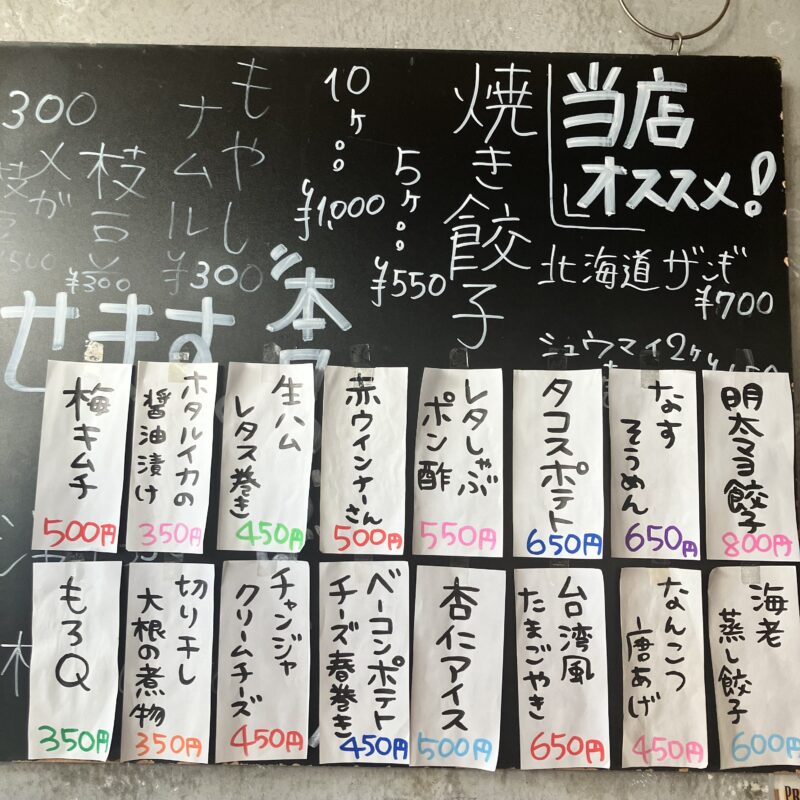 当店
オススメ!
北海道ザンギ
¥700
シュウマイ2ケ
焼き餃子
5ケ。。
¥550
10ケ。。
¥1,000
もやし
ナムル
¥300
枝豆
¥300
メガ
300
せます
本
明太マヨ餃子
800円
なす
そうめん
650円
タコスポテト
650円
レタしゃぶ
ポン酢
550円
赤ウインナーさん
500円
生ハム
レタス巻き
450円
ホタルイカの
醤油漬け
350円
梅キムチ
500円
海老
蒸し餃子
600円
なんこつ
唐あげ
450円
台湾風
たまごやき
650円
杏仁アイス
500円
ベーコンポテト
チーズ春巻き
450円
チャンジャ
クリームチーズ
450円
切り干し
大根の煮物
350円
もろQ
350円